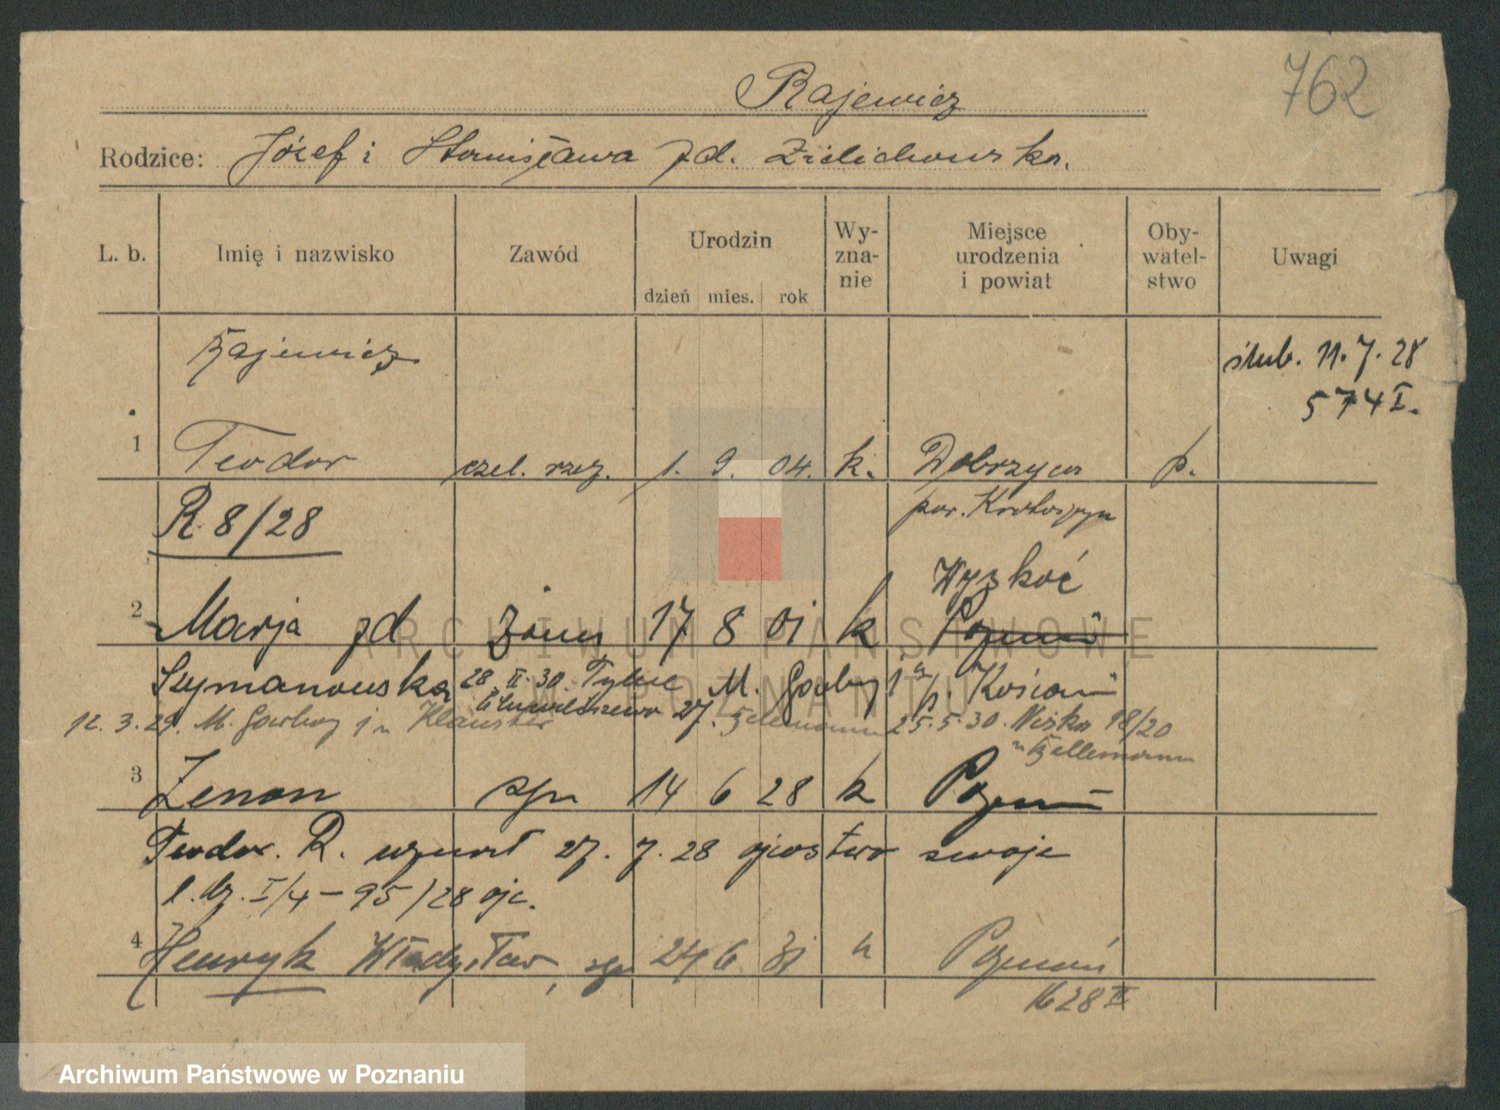 762
Rajewicz
Rodzice: Józef i Stanisława zd. Zielichowska.
L. b.
Imię i nazwisko
Zawód
Urodzin
dzień mies. rok
Wy-
zna-
nie
Miejsce
urodzenia
i powiat
Oby-
watel-
stwo
Uwagi
Rajewicz
ślub. 11.7.28
574 I.
1 Teodor czel. rzez. 1. 9. 04. k. Dobrzyca p.
pow. Krotoszyn
R 8/28
Wyskoć
2 Marja zd żona 17 8 01 k Poznań
Szymanowska 28 II. 30. M. Garbary 1 p. Kościan
12. 3. 29. M. Garbary
25.5.30. 18/20
3 Zenon syn 14 6 28 k Poznań
Teodor R. uznał 27. 7. 28 ojcostwo swoje
l. dz. I/4 – 95/28 ojc.
4 Henryk Władysław, syn 24 6 31 k Poznań
1628 II
ARCHIWUM PAŃSTWOWE
W POZNANIU
Archiwum Państwowe w Poznaniu